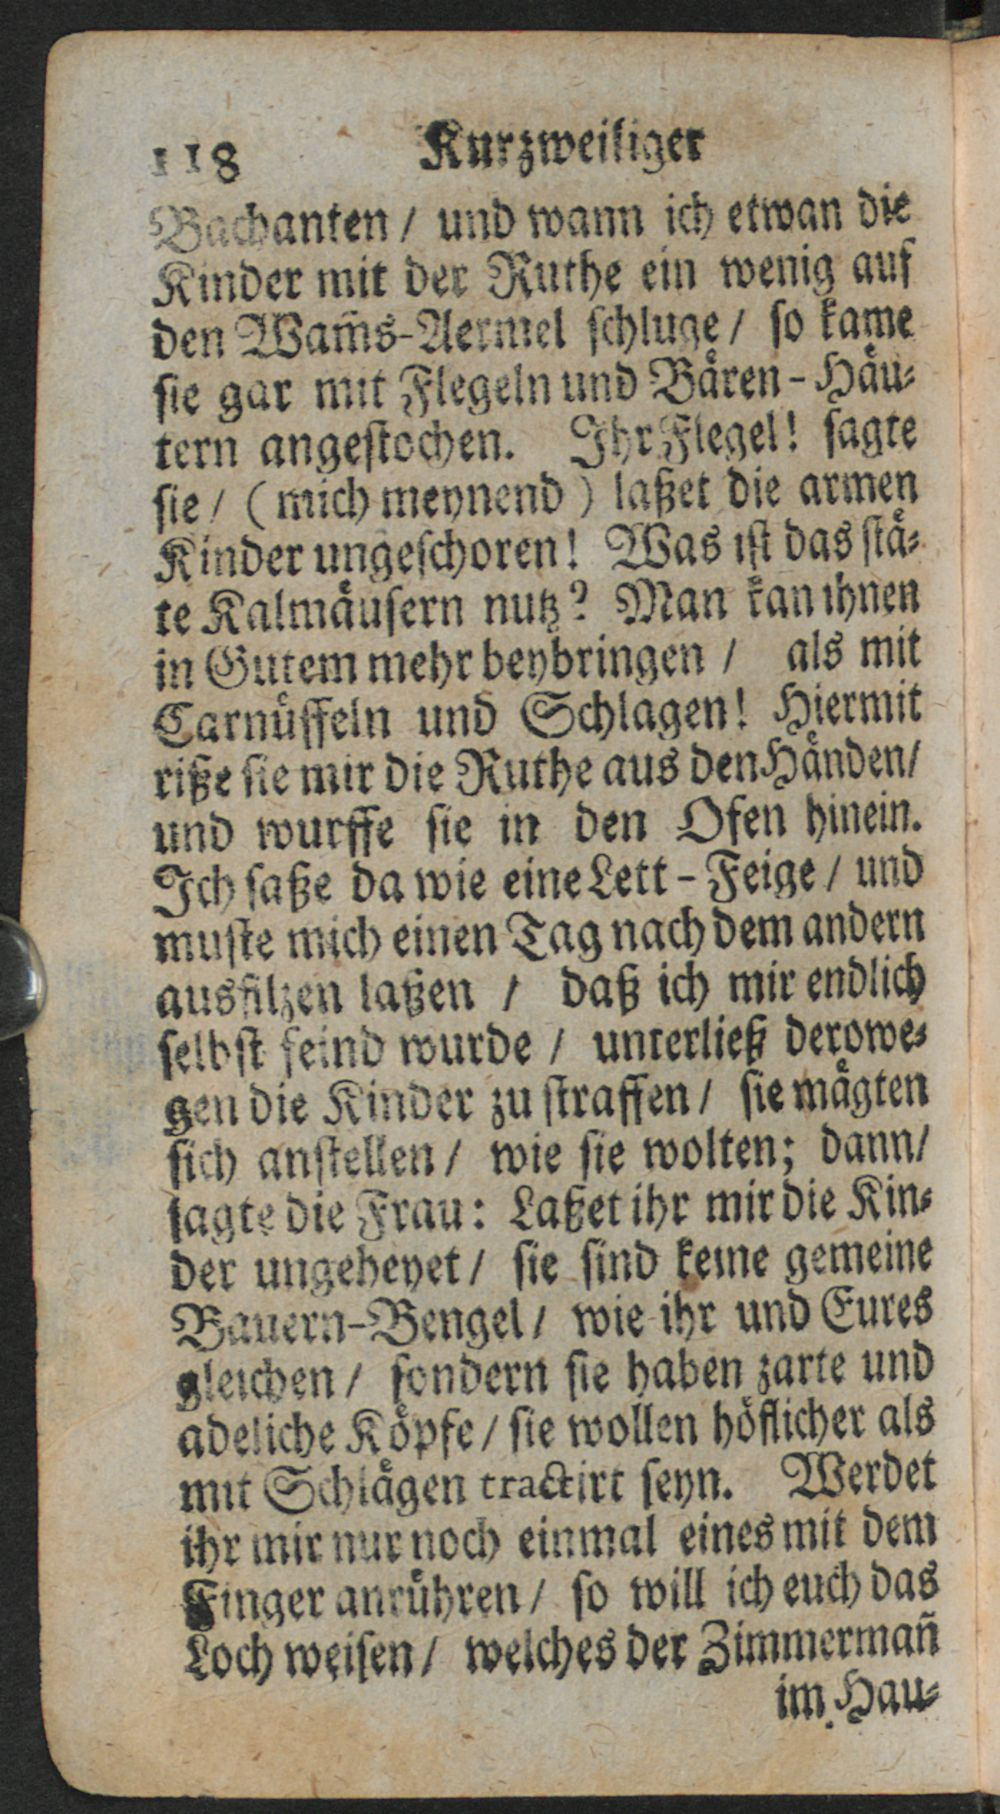 118 Kurzweiliger
Bachanten / und wann ich etwan die
Kinder mit der Ruthe ein wenig auf
den Wam̃s-Aermel schluge / so kame
sie gar mit Flegeln und Bären-Häu-
tern angestochen. Ihr Flegel! sagte
sie / (mich meynend) laßet die armen
Kinder ungeschoren! Was ist das stä-
te Kalmäusern nutz? Man kan ihnen
in Gutem mehr beybringen / als mit
Carnüffeln und Schlagen! Hiermit
riße sie mir die Ruthe aus den Händen /
und wurffe sie in den Ofen hinein.
Ich saße da wie eine Lett-Feige / und
muste mich einen Tag nach dem andern
ausfilzen laßen / daß ich mir endlich
selbst feind wurde / unterließ derowe-
gen die Kinder zu straffen / sie mägten
sich anstellen / wie sie wolten; dann /
sagte die Frau: Laßet ihr mir die Kin-
der ungeheyet / sie sind keine gemeine
Bauern-Bengel / wie ihr und Eures
gleichen / sondern sie haben zarte und
adeliche Köpfe / sie wollen höflicher als
mit Schlägen tractirt seyn. Werdet
ihr mir nur noch einmal eines mit dem
Finger anrühren / so will ich euch das
Loch weisen / welches der Zimmermañ
im Hau-